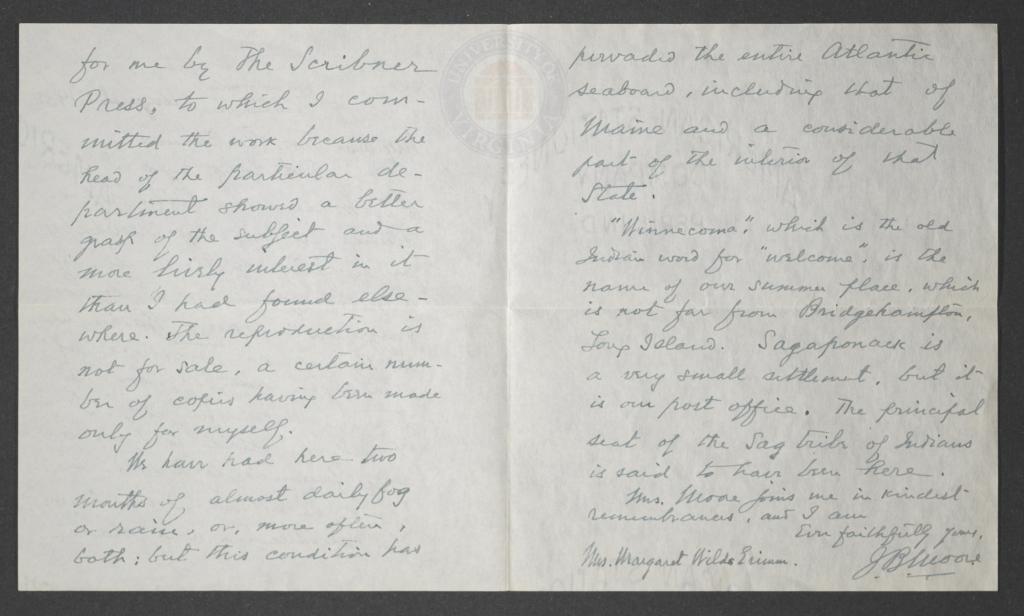 for me by The Scribner
Press, to which I com-
mitted the work because the
head of the particular de-
partment showed a better
grasp of the subject and a
more lively interest in it
than I had found else-
where. The reproduction is
not for sale, a certain num-
ber of copies having been made
only for myself.
We have had here two
months of almost daily fog
or rain, or, more often,
both; but this condition has
pervaded the entire Atlantic
seaboard, including that of
Maine and a considerable
part of the interior of that
State.
"Winnecoma", which is the old
Indian word for "welcome", is the
name of our summer place, which
is not far from Bridgehampton,
Long Island. Sagaponack is
a very small settlement, but it
is our post office. The principal
seat of the Sag tribe of Indians
is said to have been here.
Mrs. Moore joins me in kindest
remembrances, and I am
Ever faithfully yours,
J. B. Moore
Mrs. Margaret Wilds
UNIVERSITY OF VIRGINIA